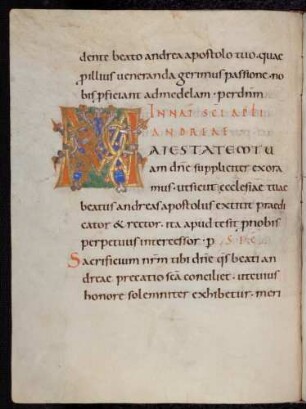 dente beato andrea apostolo tuo. quae
p illius ueneranda gerimus passione. no
bis pficiant ad medelam. per dnm
IN NAT SCI APLI
ANDREAE
MAIESTATEM TU
am dne suppliciter exora
mus. ut sicut ecclesiae tuae
beatus andreas apostolus extitit praedi
cator & rector. ita apud te sit p nobis
perpetuus intercessor. p
Sacrificium nrm tibi dne qs beati an
dreae precatio sca conciliet. ut cuius
honore solemniter exhibetur. meri